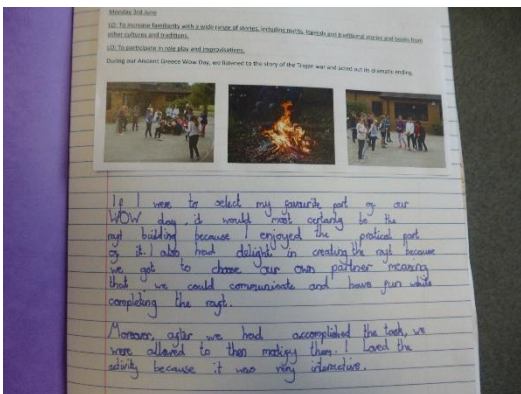 Monday 3rd June
LO: To increase familiarity with a wide range of stories, including myths, legends and traditional stories and books from
other cultures and traditions.
LO: To participate in role play and improvisations.
During our Ancient Greece Wow Day, we listened to the story of the Trojan war and acted out its dramatic ending.
If I were to select my favourite part of our
WOW day, it would most certanly be the
raft building because I enjoyed the pratical part
of it. I also had delight in creating the raft because
we got to choose our own partner meaning
that we could communicate and have fun while
completing the raft.
Moreover, after we had accomplished the task, we
were allowed to then modify them. I loved the
activity because it was very interactive.